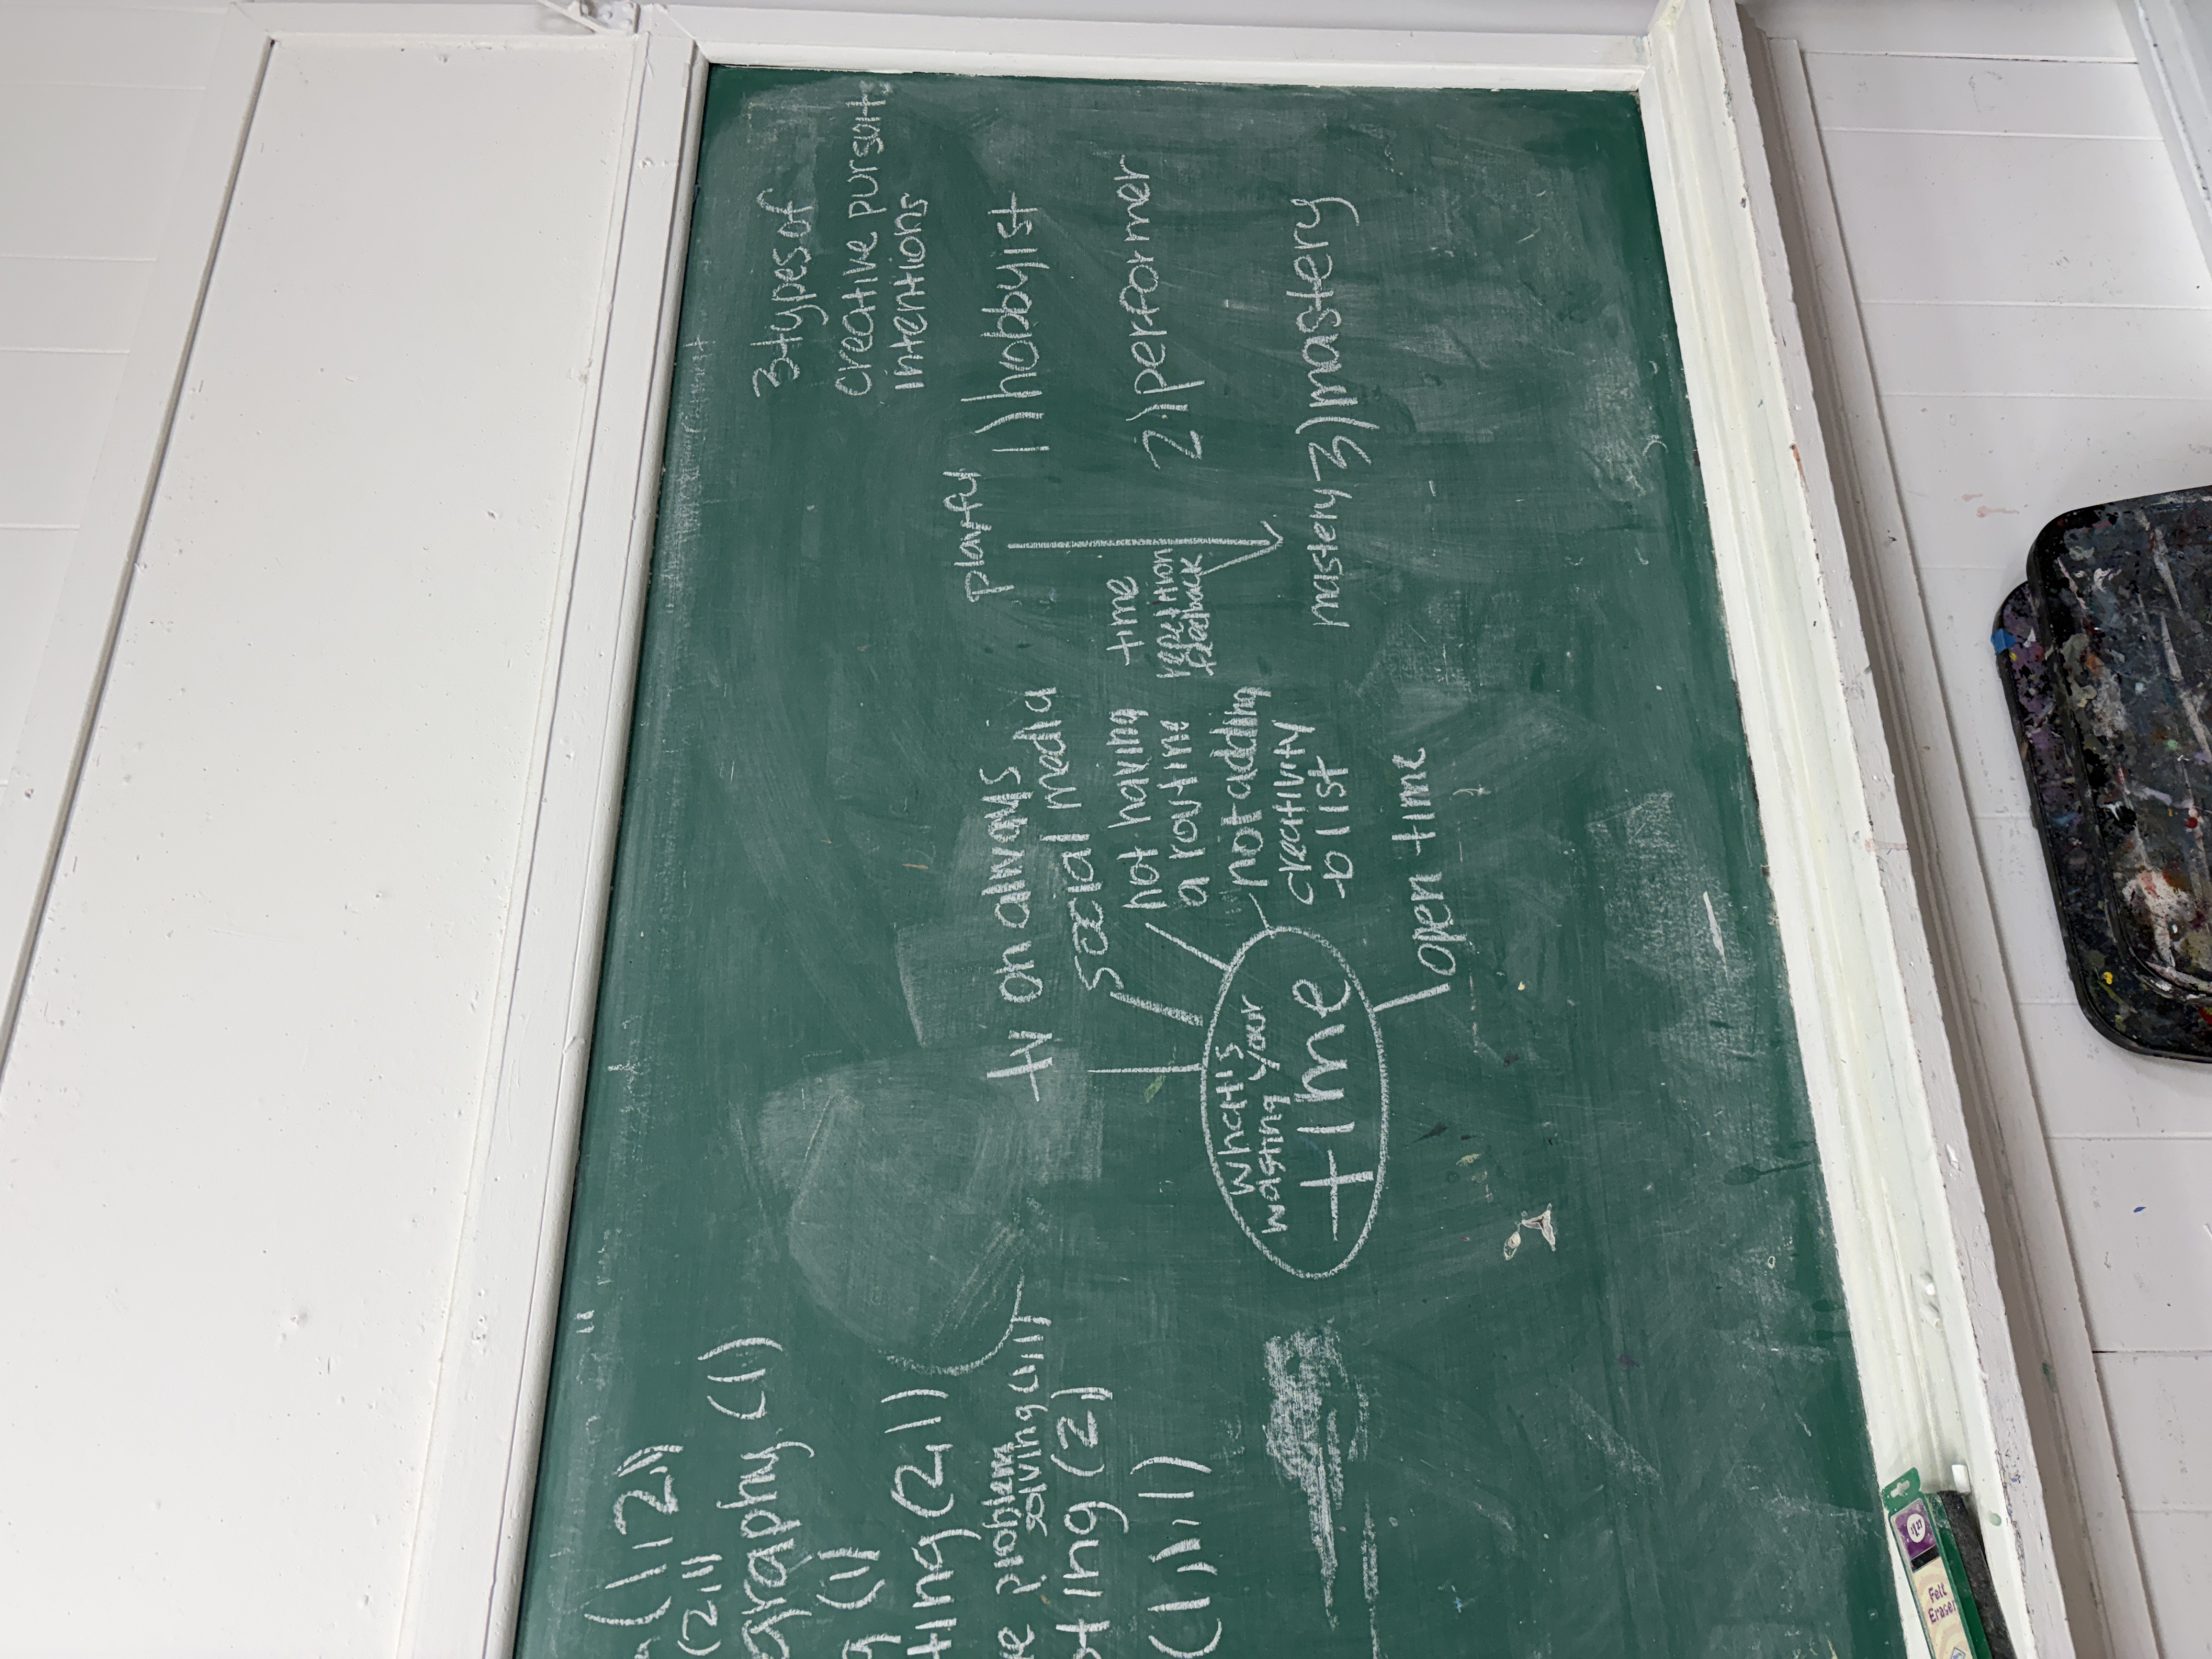 3 types of
creative pursuit
intentions
playful
1) hobbyist
2) performer
mastery 3) mastery
time
feedback
tv on always
social media
not having
a routine
not adding
creativity
to list
open time
what's
wasting your
time
(1,1,2,1)
(2,1,1)
ography (1)
g (1)
ting (2,1)
ve problem
solving
ting (2)
(1,1,1)
Felt
Eraser